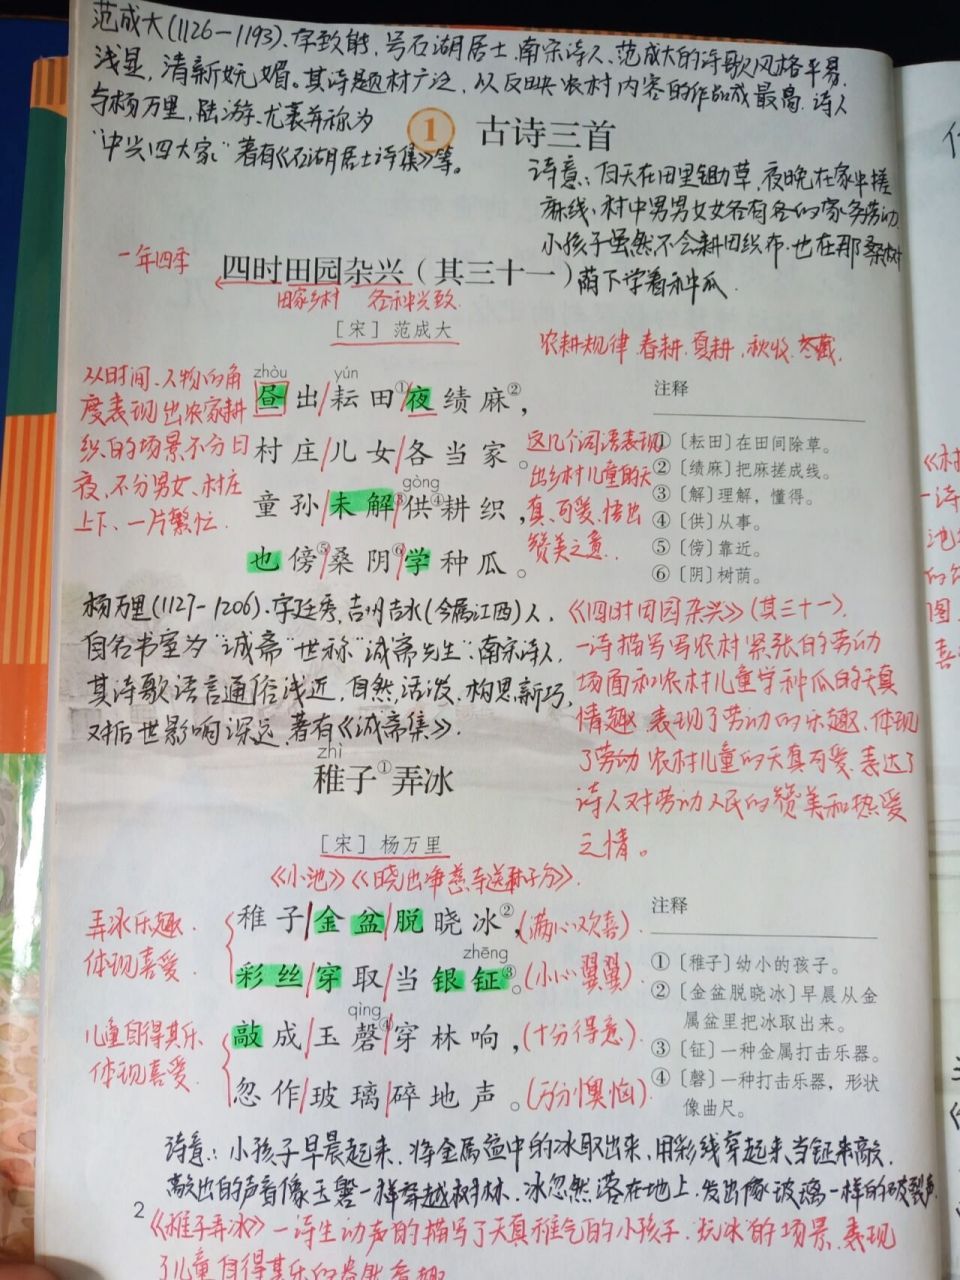 范成大(1126-1193).字致能,号石湖居士.南宋诗人、范成大的诗歌风格平易.
浅显,清新妩媚。其诗题材广泛,以反映农村内容的作品成最高.诗人
与杨万里,陆游、尤袤并称为
"中兴四大家"著有《石湖居士诗集》等。
① 古诗三首
诗意:白天在田里锄草,夜晚在家中搓
麻线、村中男男女女各有各的家务劳动.
小孩子虽然不会耕田织布.也在那桑树
荫下学着种瓜.
一年四季
四时田园杂兴(其三十一)
田家乡村 各种兴致
[宋] 范成大
农耕规律 春耕.夏耕,秋收.冬藏.
从时间、人物的角
度表现出农家耕
织的场景不分日
夜,不分男女、村庄
上下、一片繁忙.
zhòu yún
昼出/耘田①/夜绩麻②,
村庄/儿女/各当家。
gòng
童孙/未解③/供④耕织,
也傍⑤/桑阴⑥/学种瓜。
这几个词语表现
出乡村儿童的天
真、可爱、悟出
赞美之意.
注释
①〔耘田〕在田间除草。
②〔绩麻〕把麻搓成线。
③〔解〕理解,懂得。
④〔供〕从事。
⑤〔傍〕靠近。
⑥〔阴〕树荫。
杨万里(1127-1206).字廷秀,吉州吉水(今属江西)人,
自名书室为"诚斋"世称"诚斋先生".南宋诗人,
其诗歌语言通俗浅近,自然,活泼、构思新巧,
对后世影响深远.著有《诚斋集》.
《四时田园杂兴》(其三十一).
一诗描写写农村紧张的劳动
场面和农村儿童学种瓜的天真
情趣.表现了劳动的乐趣、体现
了劳动农村儿童的天真可爱.表达了
诗人对劳动人民的赞美和热爱
之情。
zhì
稚子①弄冰
[宋] 杨万里
《小池》《晓出净慈寺送林子方》.
弄冰乐趣.
体现喜爱.
儿童自得其乐
体现喜爱.
稚子/金盆/脱晓冰②,(满心欢喜).
zhēng
彩丝/穿取/当银钲③。(小心翼翼)
qìng
敲成/玉磬④/穿林响,(十分得意).
忽作/玻璃/碎地声。(万分懊恼)
注释
①〔稚子〕幼小的孩子。
②〔金盆脱晓冰〕早晨从金
属盆里把冰取出来。
③〔钲〕一种金属打击乐器。
④〔磬〕一种打击乐器,形状
像曲尺。
诗意:小孩子早晨起来.将金属盆中的冰取出来,用彩线穿起来,当钲来敲.
敲出的声音像玉磬一样穿越树林.冰忽然落在地上.发出像玻璃一样的破裂声.
2
《稚子弄冰》一诗生动的描写了天真稚气的小孩子.玩冰的场景.表现
了儿童自得其乐的